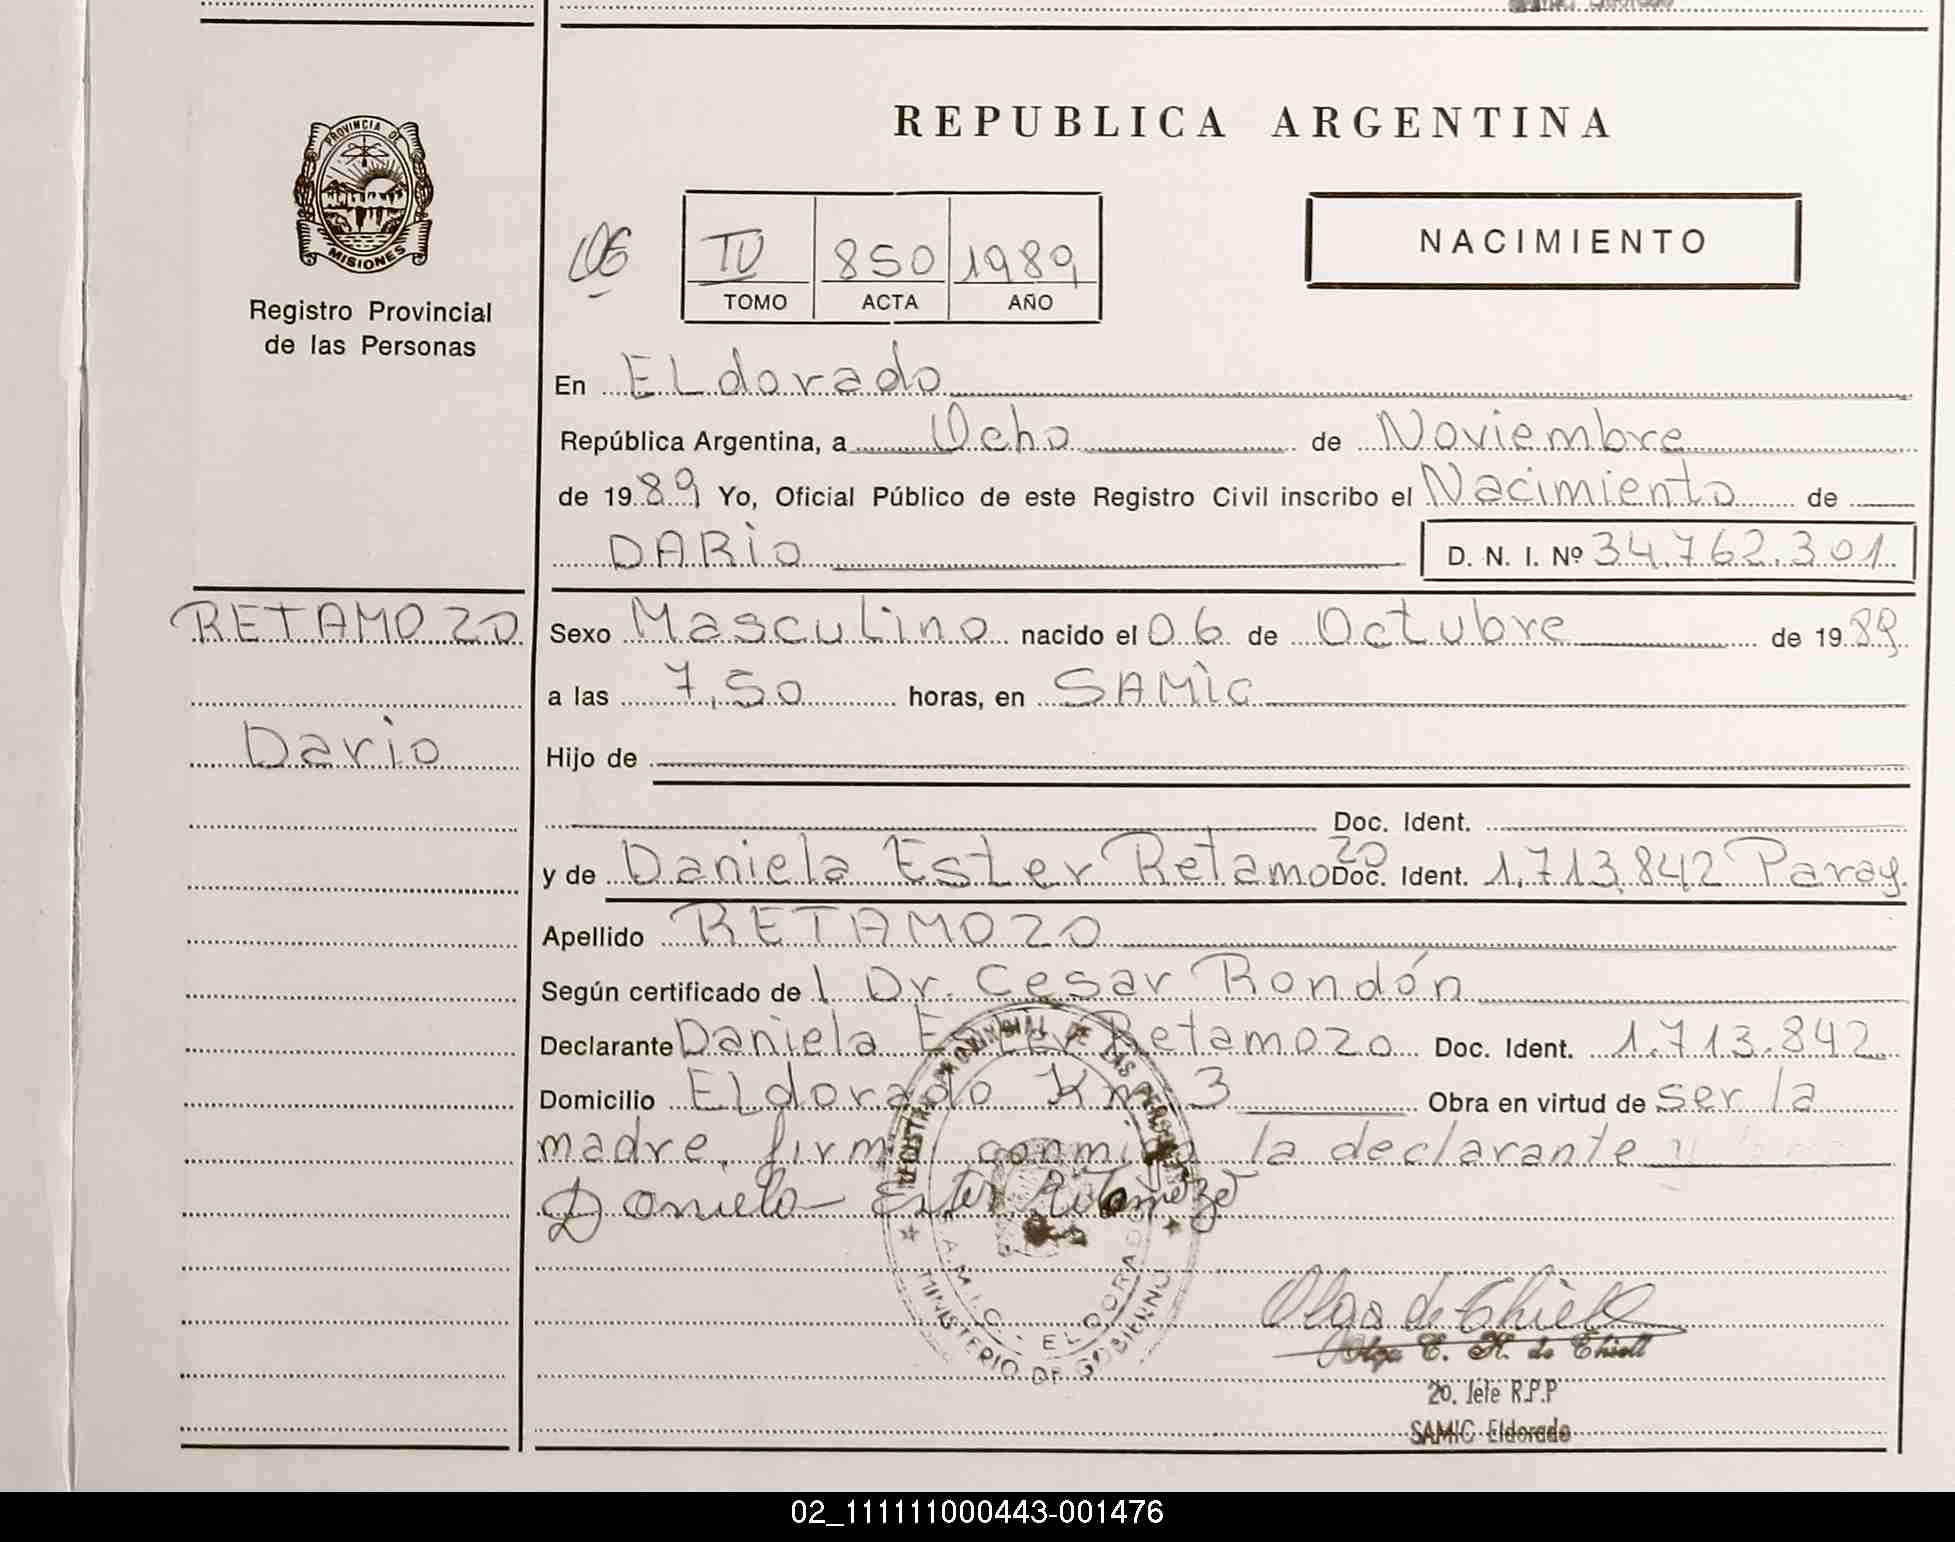 PROVINCIA DE
MISIONES
Registro Provincial
de las Personas
REPUBLICA ARGENTINA
06
IV 850 1989
TOMO ACTA AÑO
NACIMIENTO
En ELdorado
República Argentina, a Ocho de Noviembre
de 1989 Yo, Oficial Público de este Registro Civil inscribo el Nacimiento de
DARIO D. N. I. Nº 34.762.301
RETAMOZO
Dario
Sexo Masculino nacido el 06 de Octubre de 1989
a las 7,50 horas, en SAMIC
Hijo de
Doc. Ident.
y de Daniela Ester Retamozo Doc. Ident. 1.713.842 Paray
Apellido RETAMOZO
Según certificado del Dr. Cesar Rondón
Declarante Daniela Ester Retamozo Doc. Ident. 1.713.842
Domicilio ELdorado Km 3 Obra en virtud de ser la
madre, firma conmigo la declarante
Daniela Ester Retamozo
REGISTRO PROVINCIAL DE LAS PERSONAS
S.A.M.I.C. - ELDORADO
MINISTERIO DE GOBIERNO
Olga de Thiell
Olga E. K. de Thiell
2o. Jefe R.P.P
SAMIC Eldorado
02_111111000443-001476